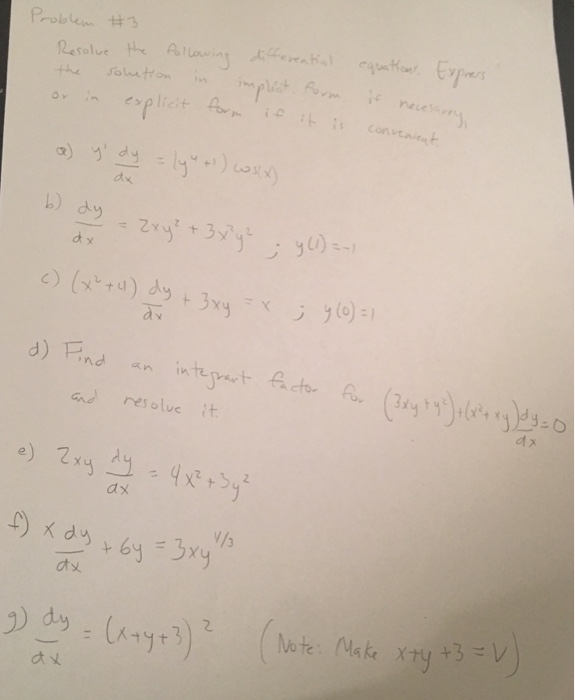 Problem #3
Resolve the following differential equations. Express
the solution in implicit form if necessary,
or in explicit form if it is convenient.
a) y' dy/dx = (y⁴+1) cos(x)
b) dy/dx = 2xy² + 3x²y² ; y(1) = -1
c) (x²+4) dy/dx + 3xy = x ; y(0) = 1
d) Find an integrant factor for (3xy+y²)+(x²+xy)dy/dx=0
and resolve it.
e) 2xy dy/dx = 4x²+3y²
f) x dy/dx + 6y = 3xy^4/3
g) dy/dx = (x+y+3)² (Note: Make x+y+3=V)